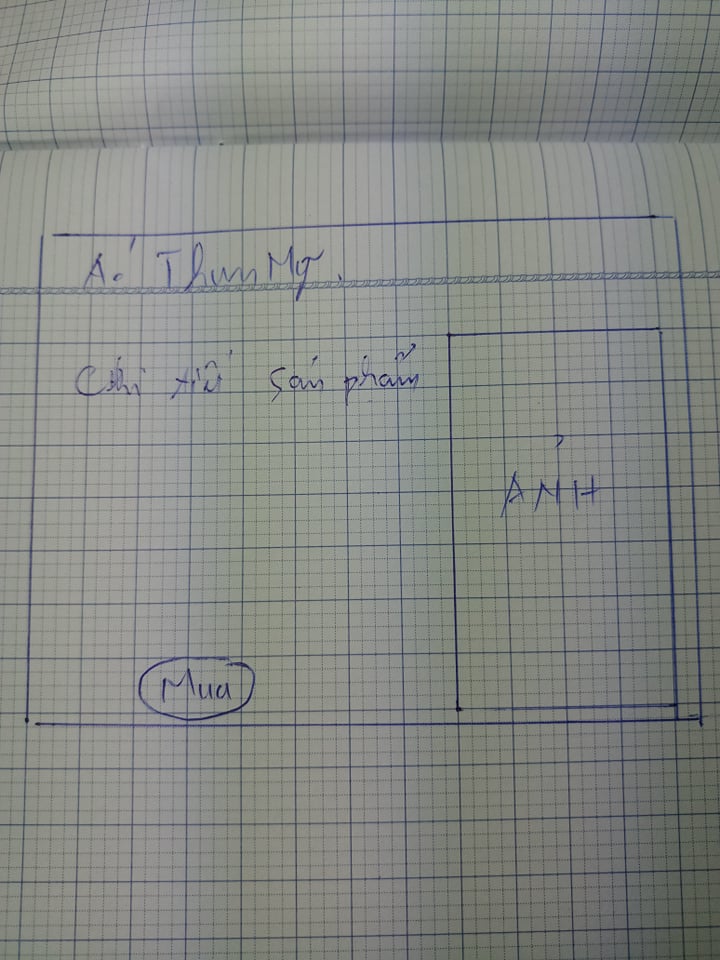 Áo Thun Mỹ.
Chi tiết sản phẩm
ẢNH
Mua